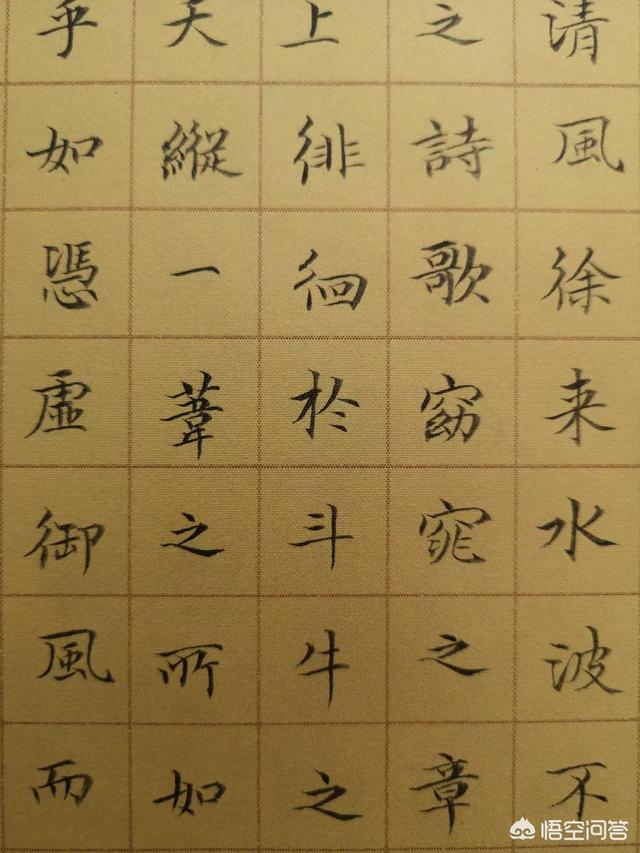 清風徐来水波不
之詩歌窈窕之章
上徘徊於斗牛之
天縱一葦之所如
乎如憑虚御風而
悟空问答